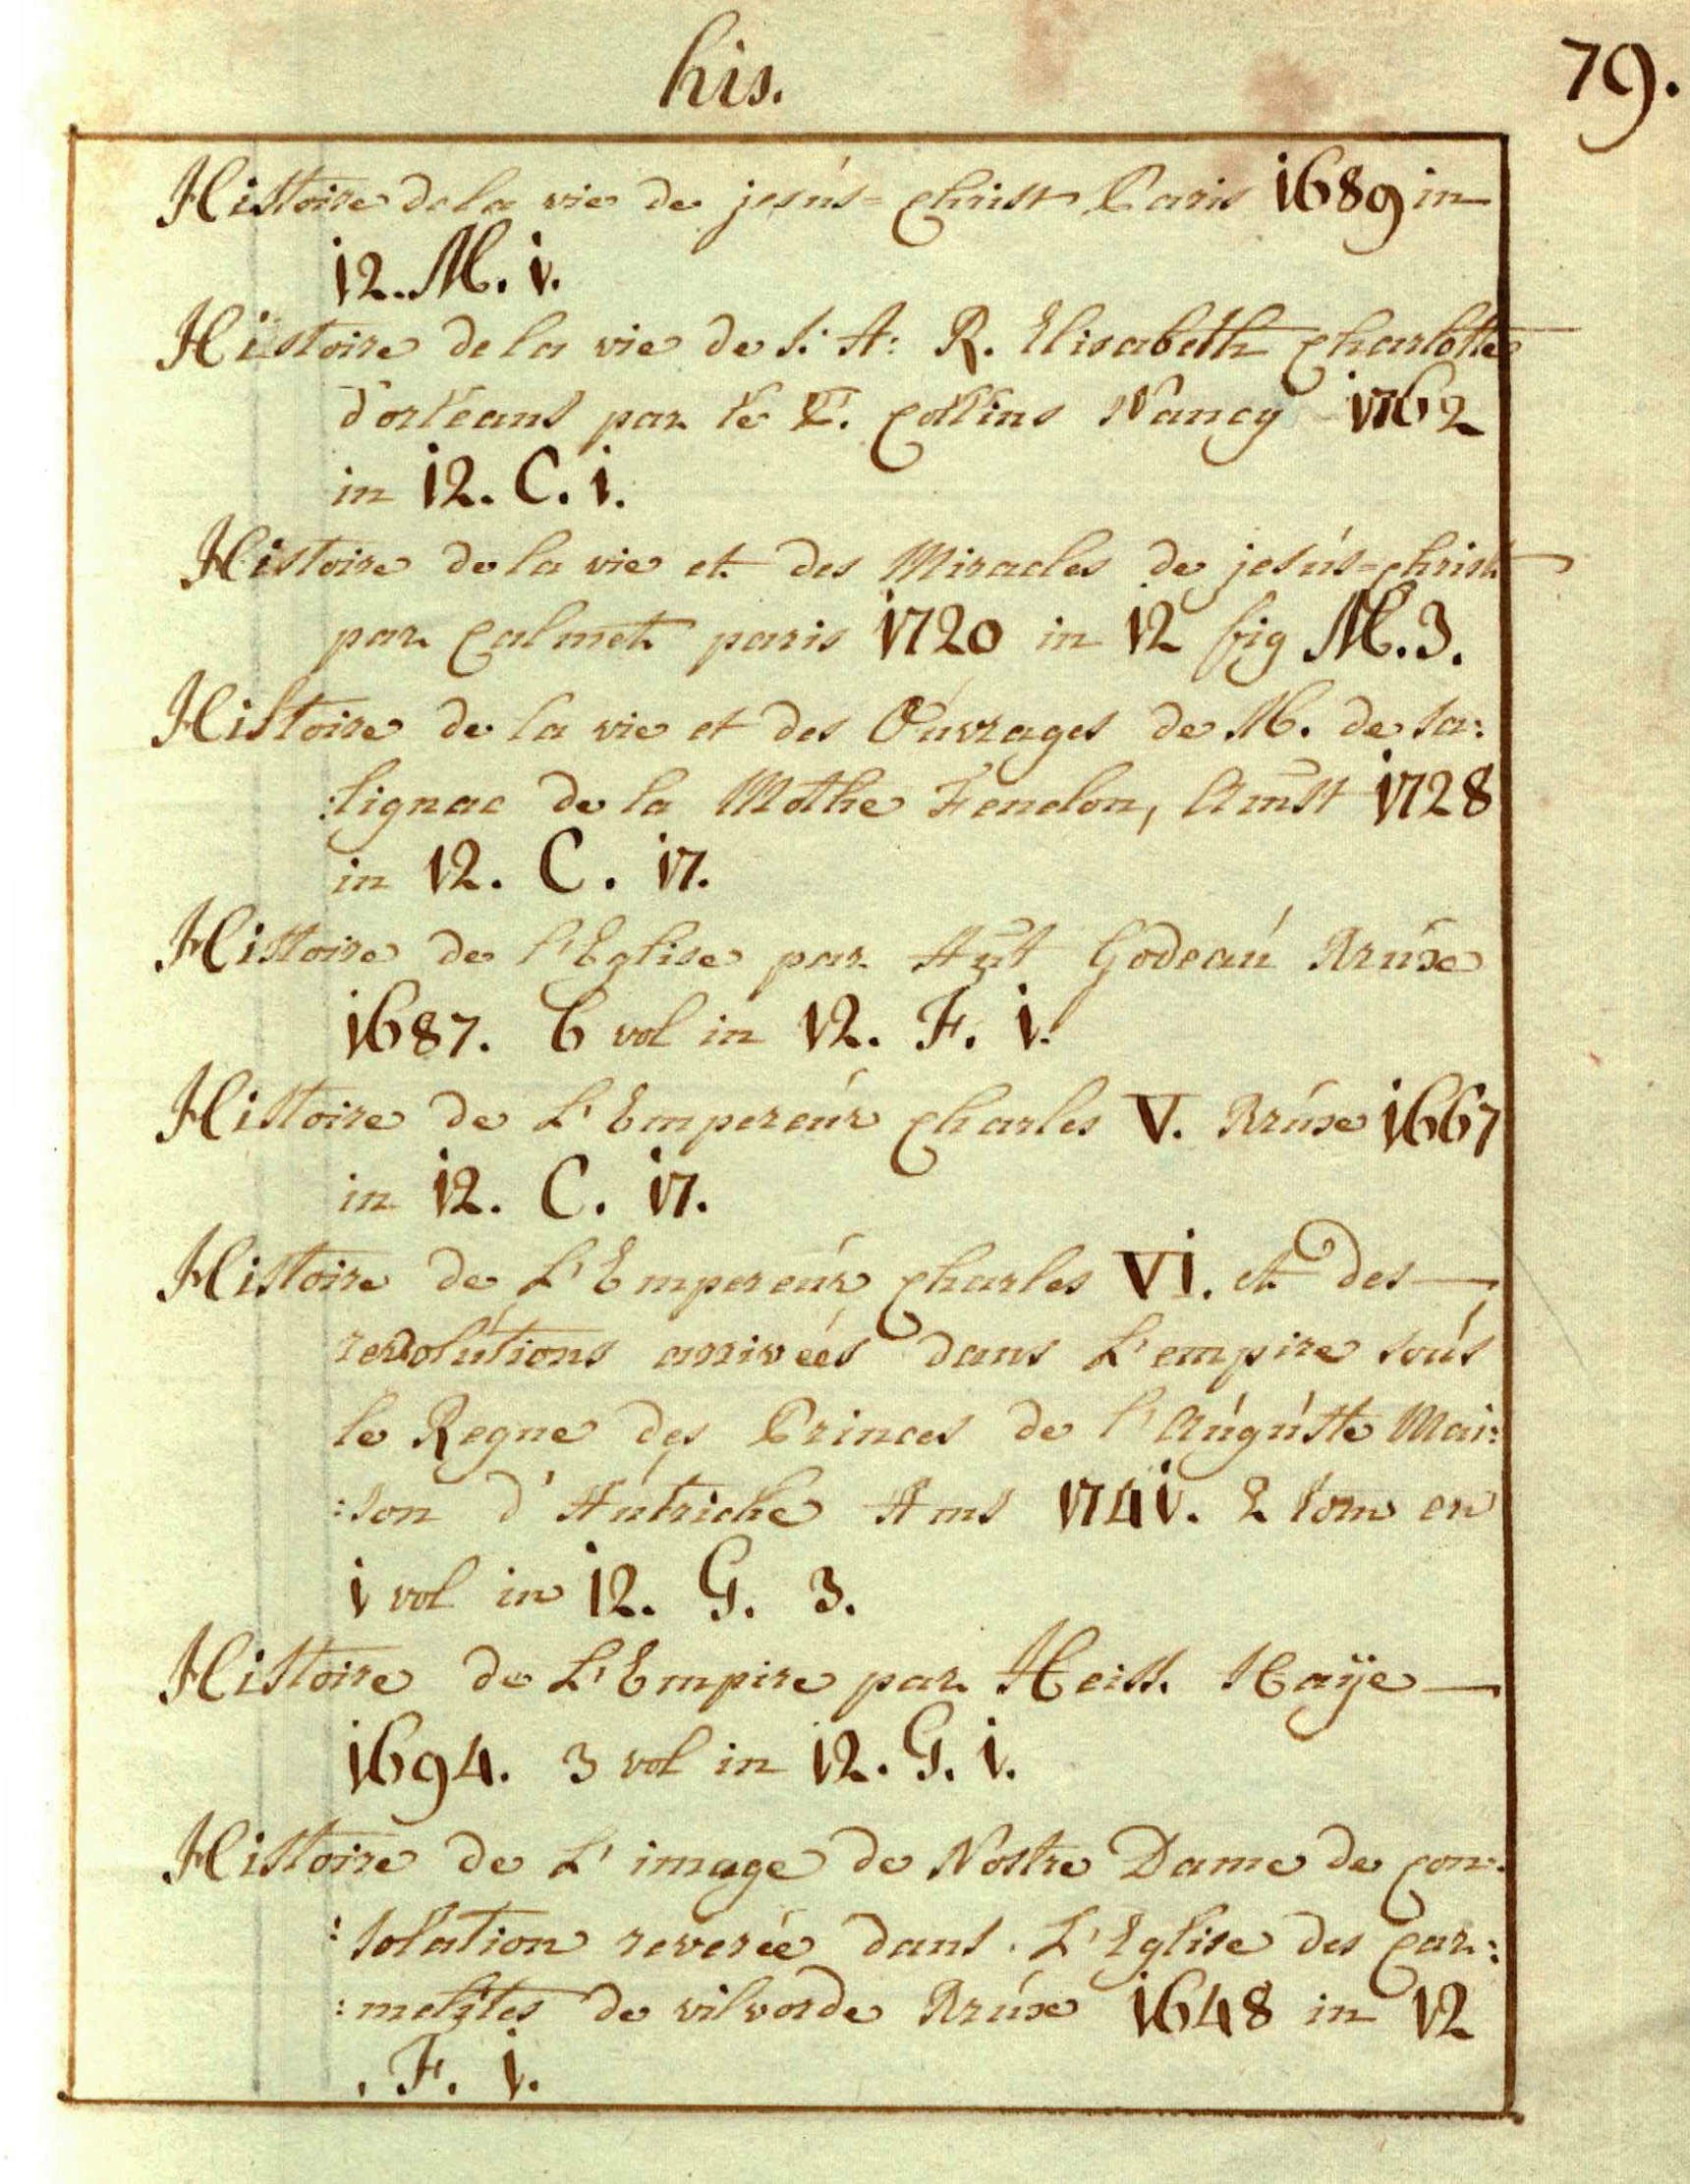 his.
79.
Histoire de la vie de jesús=christ Paris 1689 in
12. M. i.
Histoire de la vie de s. A: R. Elisabeth charlotte
d'orleans par le P. Collins Nancy 1762
in 12. C. i.
Histoire de la vie et des Miracles de jesús=christ
par Calmet paris 1720 in 12 fig M. 3.
Histoire de la vie et des Oúvrages de M. de sa:
:lignac de la Mothe Fenelon, Amst 1728
in 12. C. 17.
Histoire de l'Eglise par Godeaú Brúxe
1687. 6 vol in 12. F. i.
Histoire de L'Empereúr charles V. Brúxe 1667
in 12. C. 17.
Histoire de L'Empereúr charles Vi. et des —
revolútions arrivées dans L'empire soús
le Regne des Princes de l'Aúgúste Mai:
:son d'Aútriche Ams 1741. 2 tom en
i vol in 12. G. 3.
Histoire de L'Empire par Heiss. Haÿe —
1694. 3 vol in 12. G. i.
Histoire de L'image de Nostre Dame de con:
:solation reverée dans L'Eglise des Car:
:melites de vilvorde Brúxe 1648 in 12
. F. i.